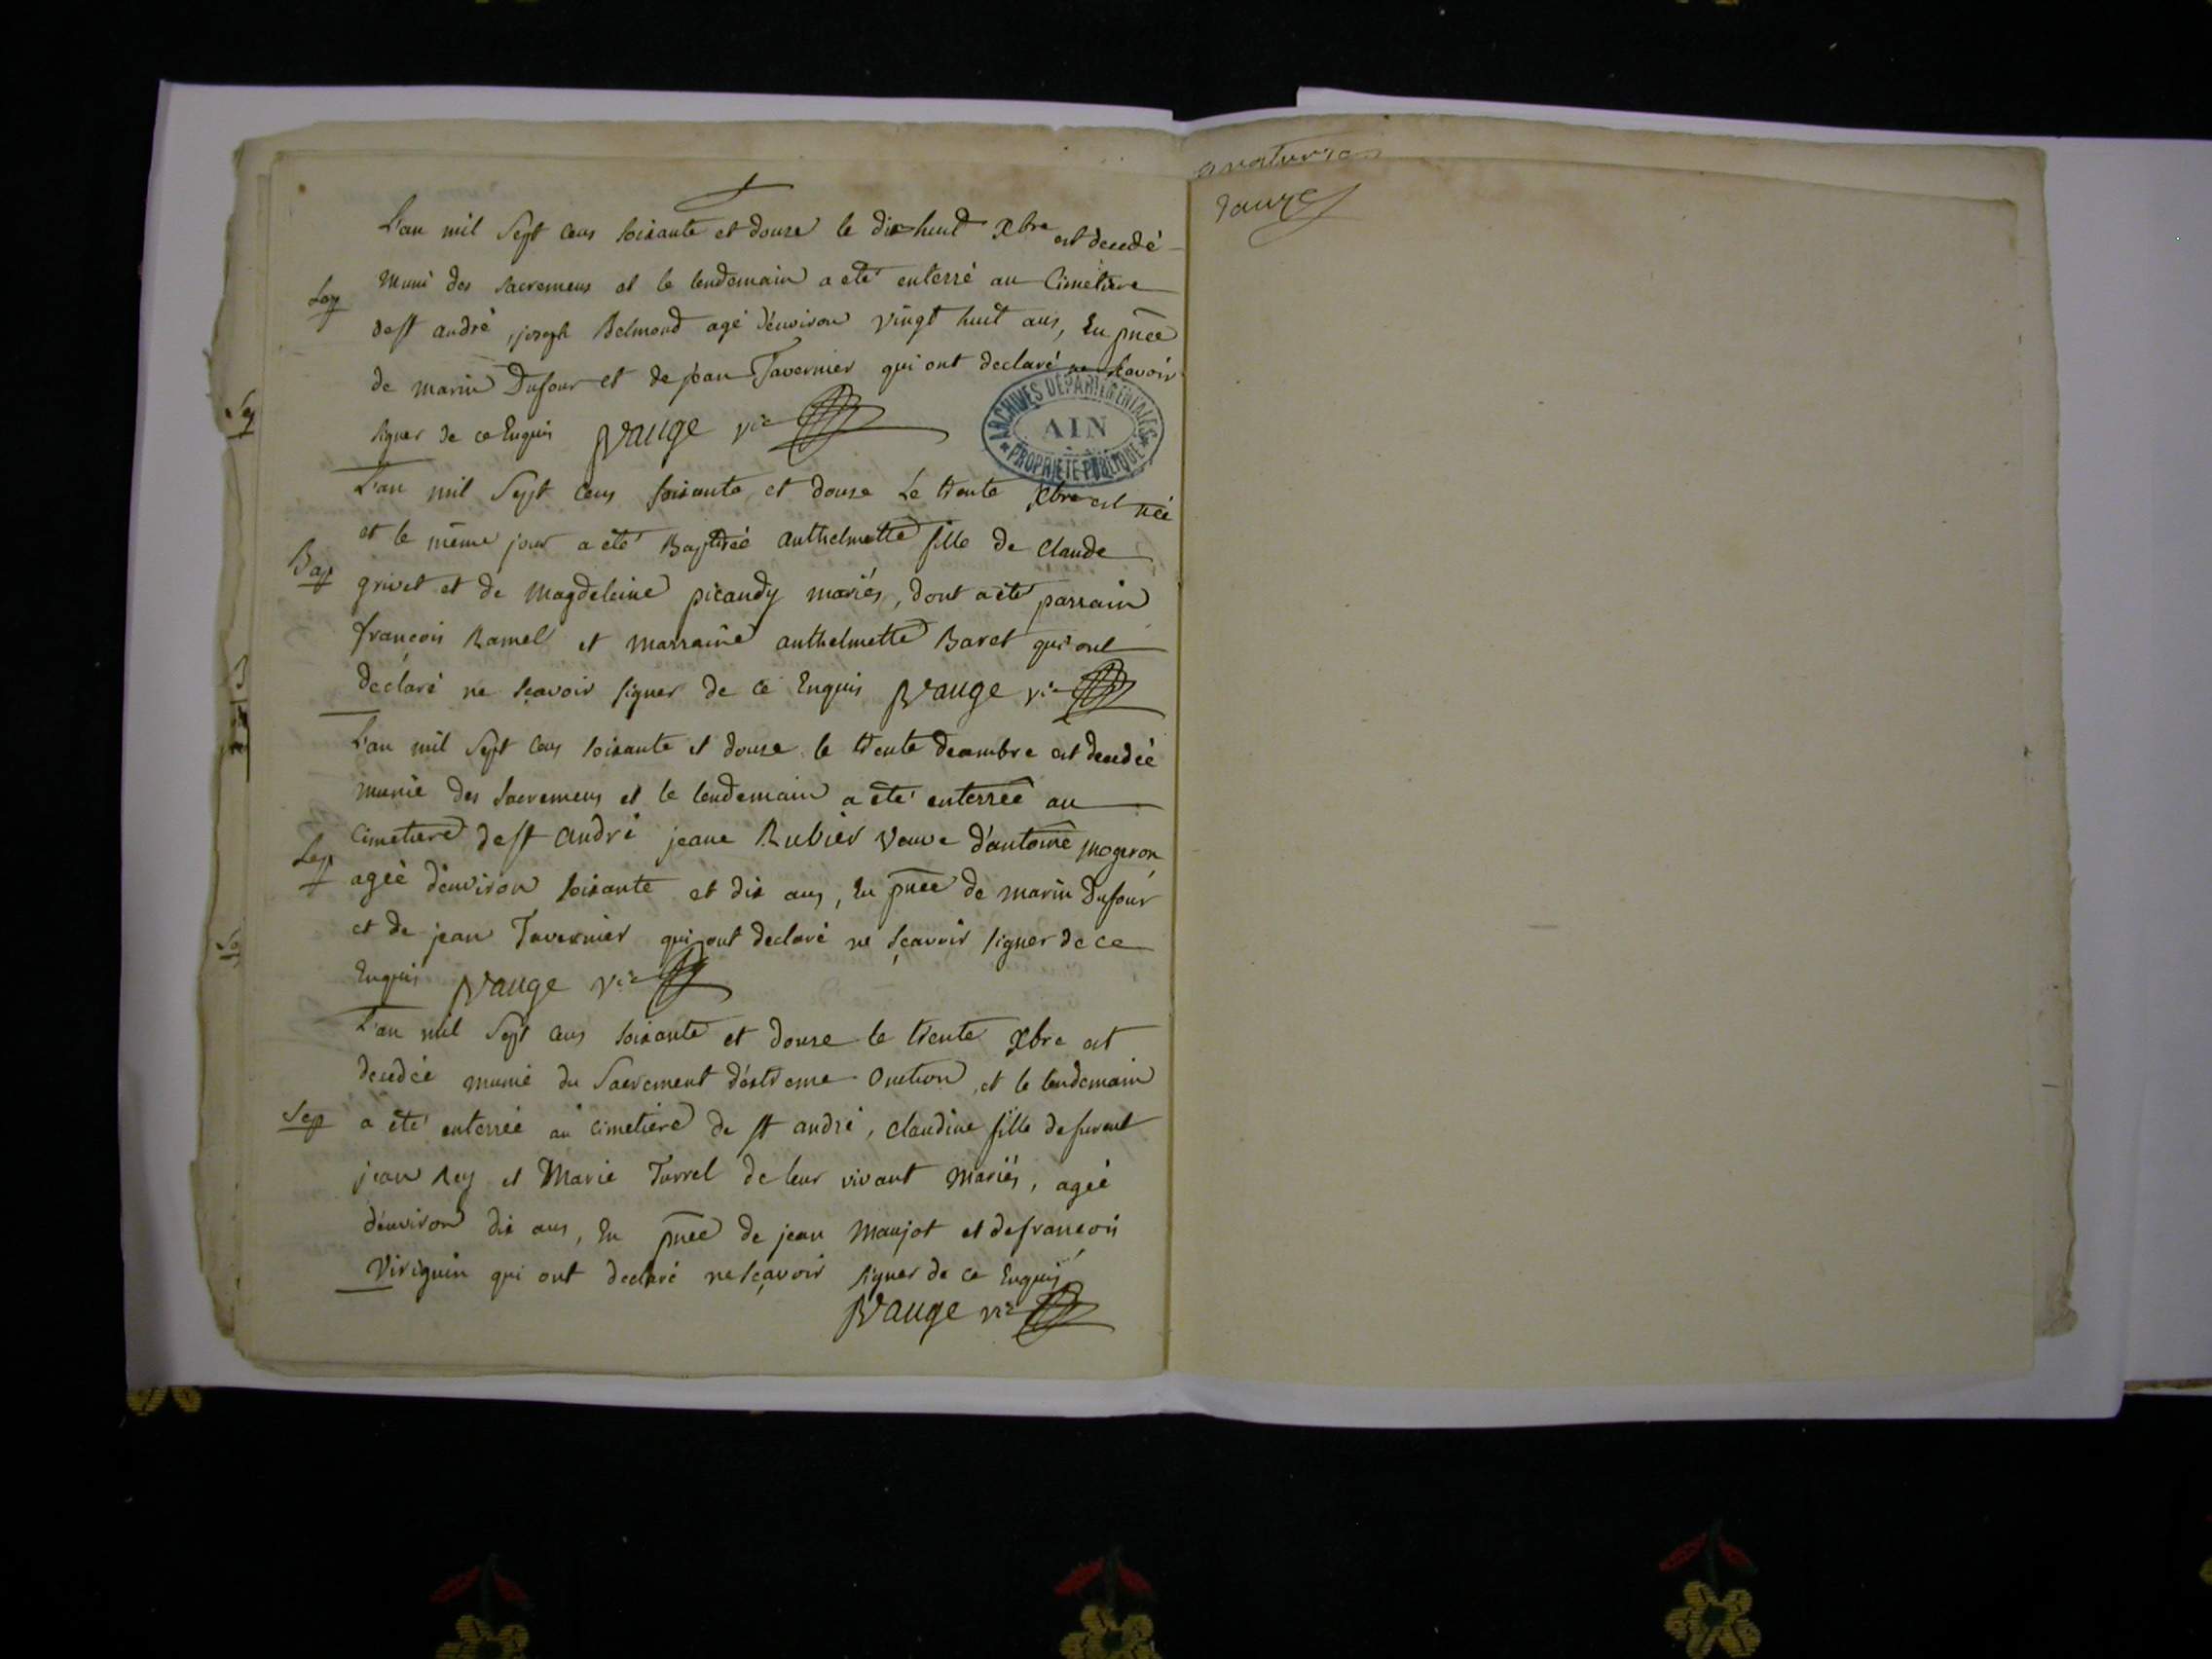 L'an mil Sept Cens Soixante et douse le dix huit Xbre est decedé
Sep
muni des Sacremens et le lendemain a eté enterré au Cimetiere
de st andré, joseph Belmond agé d'environ vingt huit ans, En pñce
de marin Dufour et de jean Tavernier qui ont declaré ne Scavoir
signer de ce Enquis pvauge vic
ARCHIVES DÉPARTEMENTALES
AIN
PROPRIÉTÉ PUBLIQUE
L'an mil Sept Cens soixante et douse Le trente Xbre est néé
et le même jour a eté Baptiséé anthelmette fille de Claude
Bap
grivet et de Magdeleine picandy mariés, dont a été parrain
françois Ramel et marraine anthelmette Baret qui ont
declaré ne sçavoir signer de ce Enquis pvauge vic
L'an mil Sept Cens soixante et douse le trente decembre est decedéé
munie des Sacremens et le lendemain a été enterréé au
Cimetiere de st andré jeane Rubier veuve d'antoine mogeron
Sep
agéé d'environ soixante et dix ans, En pñce de marin Dufour
et de jean Tavernier qui ont declaré ne sçavoir signer de ce
Enquis pvauge vic
L'an mil Sept Cens soixante et douse le trente Xbre est
decedéé munie du Sacrement d'éxtreme Onction, et le lendemain
Sep
a été enterréé au Cimetiere de st andré, Claudine fille de furent
jean Rey et Marie Turrel de leur vivant Mariés, agéé
d'environ dix ans, En pñce de jean Maujot et de françois
Viriguin qui ont declaré ne sçavoir signer de ce Enquis
pvauge vic